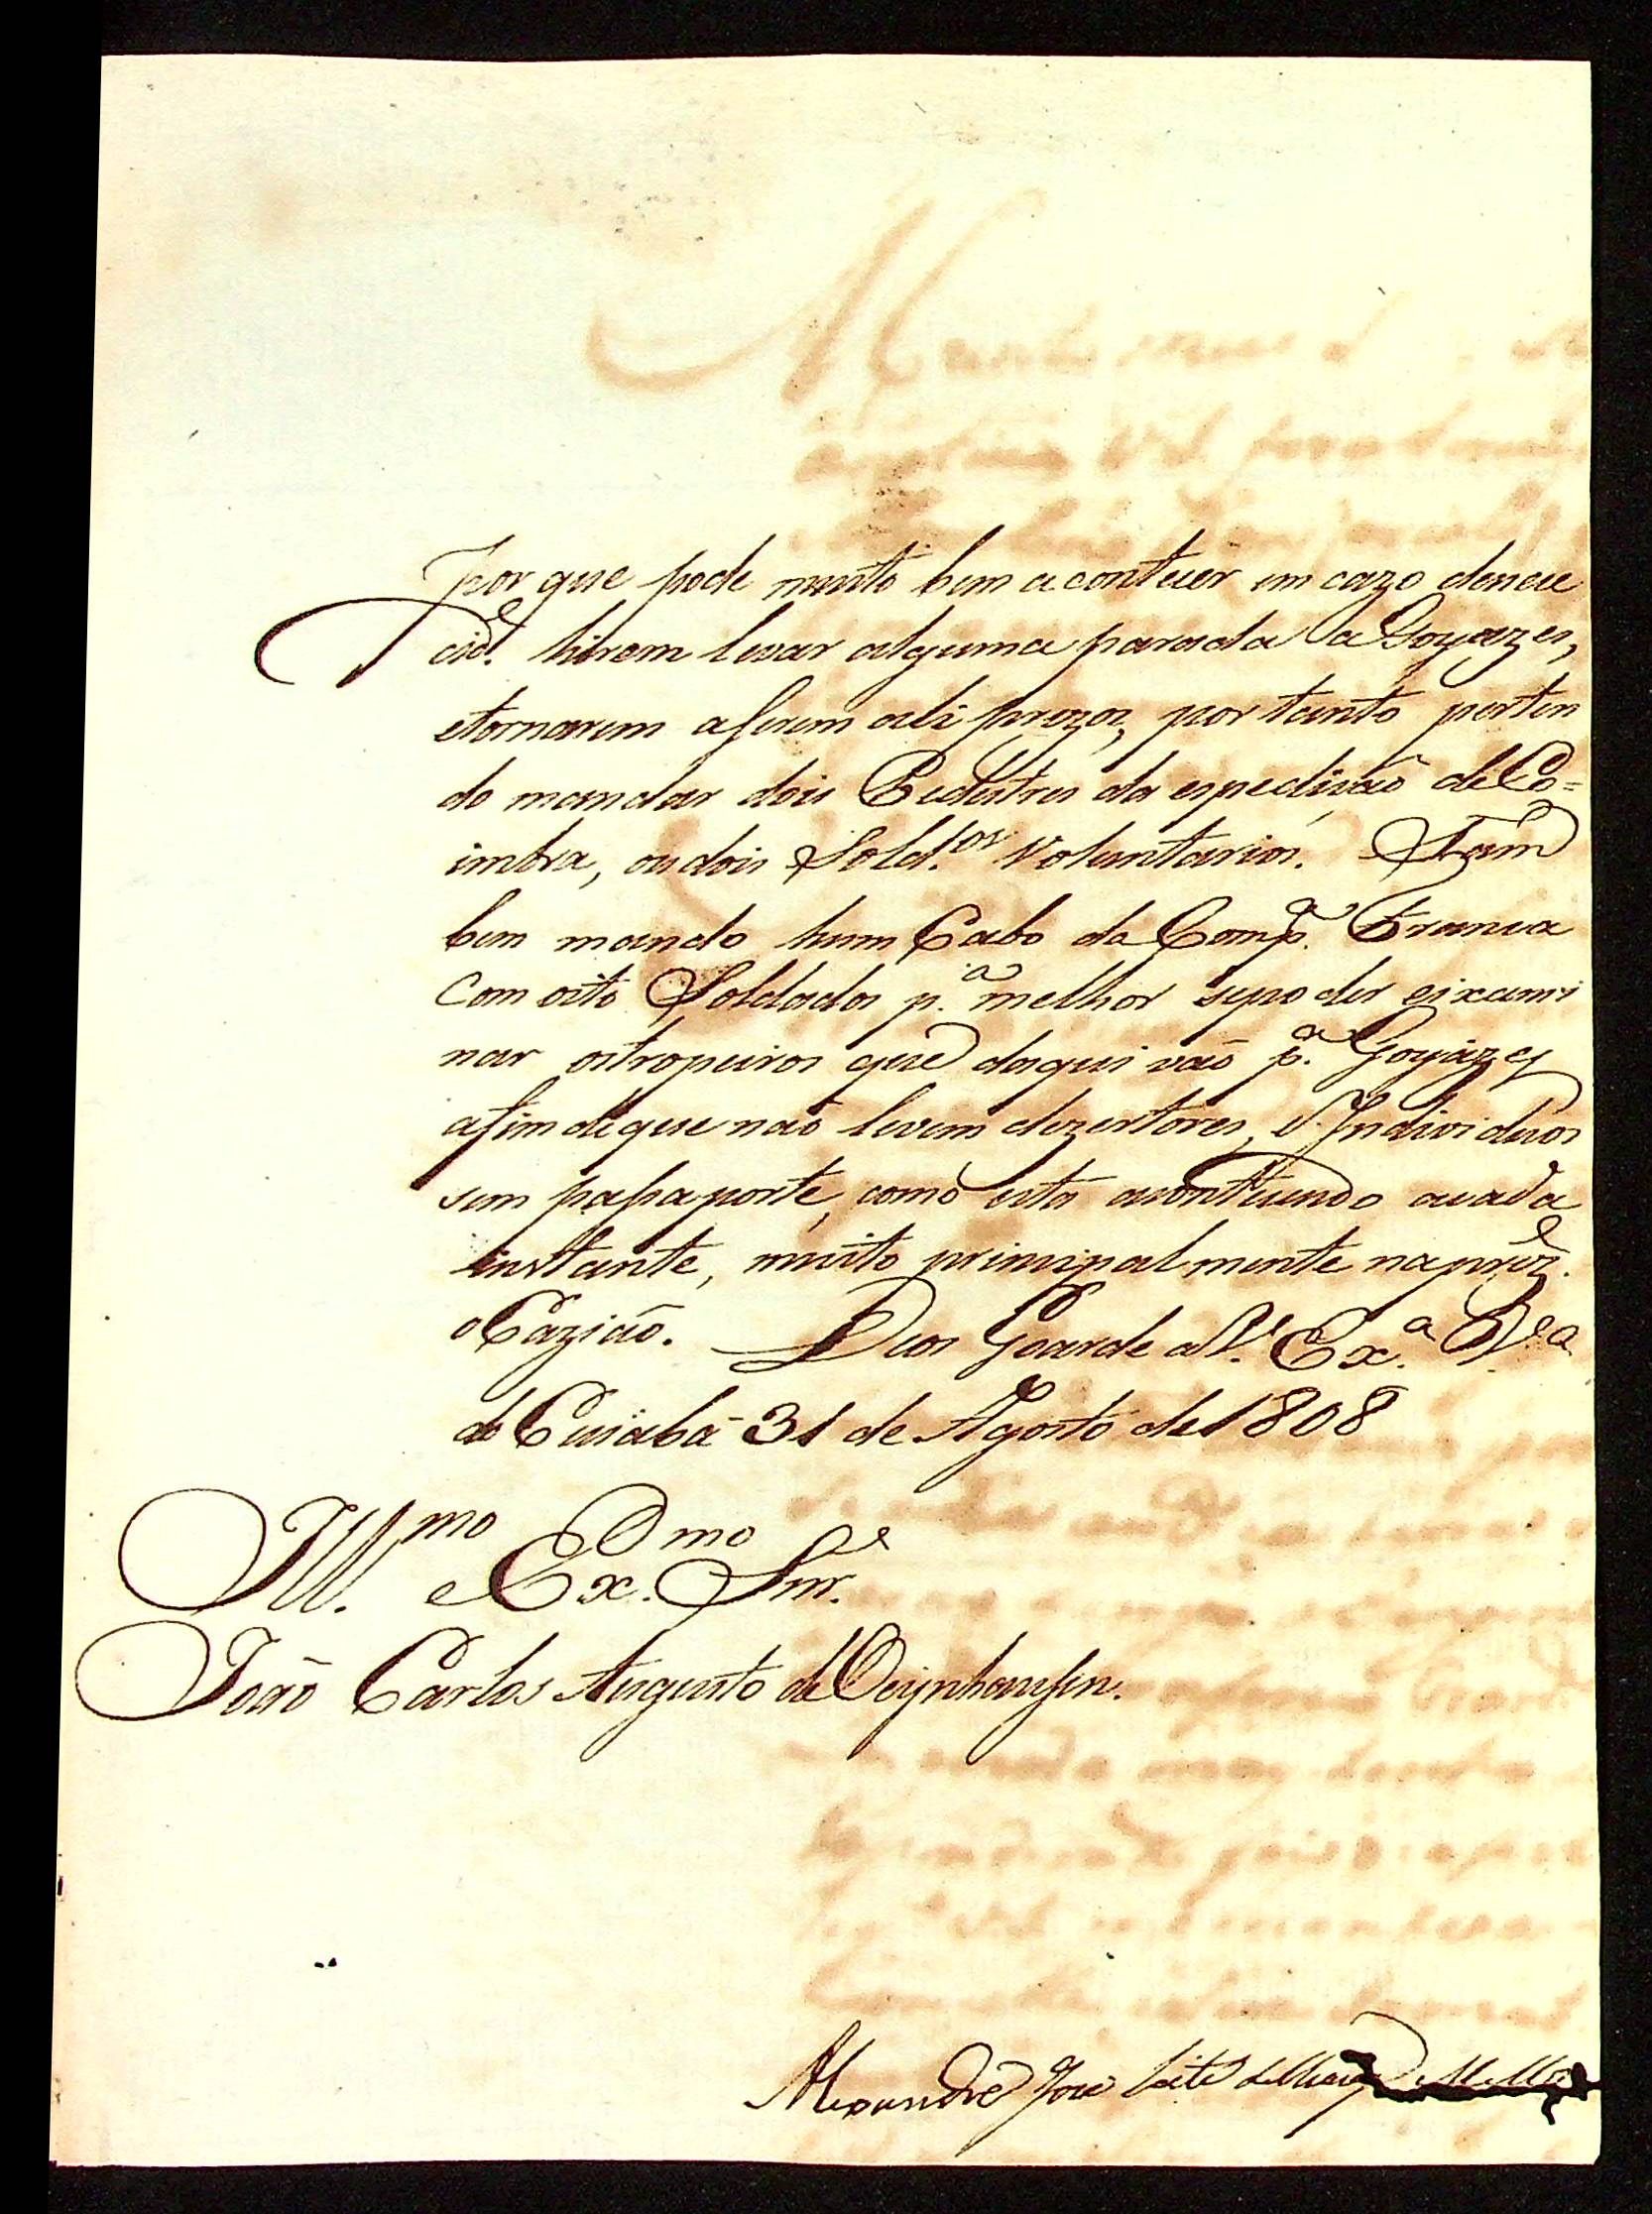 por que pode muito bem acontecer em cazo denece
cid.e hirem levar alguma parada a Goyazes,
etornarem aserem ali prezos, por tanto perten
do mandar dois Pedestres da espedição de Co=
imbra, ou dois Sold.os Voluntarios. Tam
bem mando hum Cabo da Comp.a Franca
com oito Soldados p.a melhor sepoder eixami
nar ostropeiros que daqui vaõ p.a Goyázes
afim deque naõ levem dezertores, e Individuos
sem pasaporte, como esta acontecendo acada
instante, muito principalmente naprez.e
oCazião. Deos Goarde a V. Ex.a V.a
do Cuiabá 31 de Agosto de 1808
Ill.mo e Ex.mo Snr.
João Carlos Augusto de Oeynhausen.
Alexandre Jose Leite de